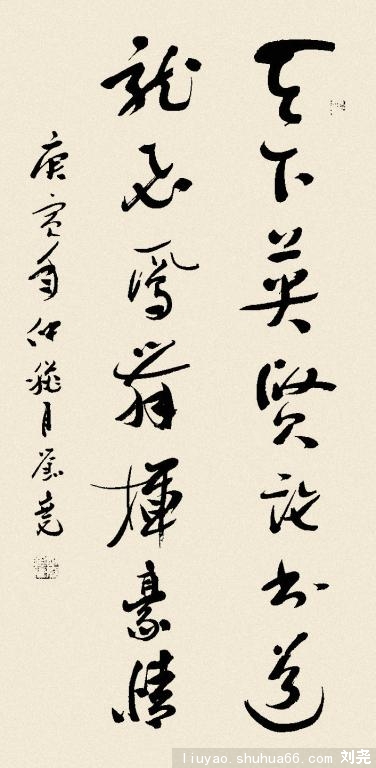 天下英贤论书道
龙飞凤舞挥豪情
庚寅年仲秋月刘尧
liuyao.shuhua66.com 刘尧